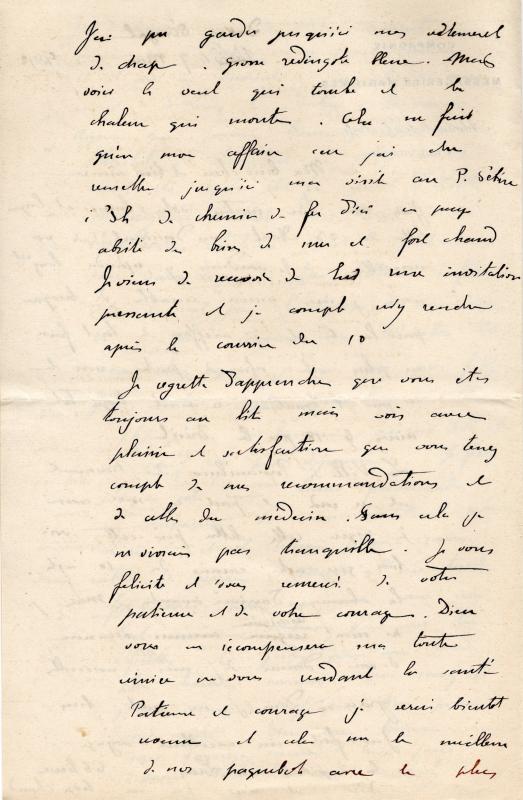 J'ai pu garder jusqu'ici mes vêtements
de drap. grosse redingote bleue. Mais
voici le vent qui tombe et la
chaleur qui monte. Cela ne fait
guère mon affaire car j'ai dû
remettre jusqu'ici ma visite au P.
de chemin de fer d'ici en pays
abrité des brises de mer et fort chaud
Je viens de recevoir de lui une invitation
pressante et je compte m'y rendre
après le courrier du 10
Je regrette d'apprendre que vous êtes
toujours au lit mais vois avec
plaisir et satisfaction que vous tenez
compte de mes recommandations et
de celles du médecin. Sans cela je
ne vivrais pas tranquille. Je vous
félicite et vous remercie de votre
patience et de votre courage. Dieu
vous en récompensera ma toute
en vous rendant la santé
Patience et courage je serai bientôt
et cela sur le meilleur
de nos paquebots avec le plus